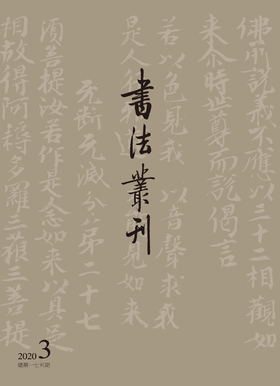 佛所說義不應以三十二相觀
來尒時世尊而說偈言
若以色見我 以音聲求我
是人行邪道 不能見如來
无斷无滅分第二十七
須菩提汝若作是念如來以具足
相故得阿耨多羅三藐三菩提
書法叢刊
2020 3
總第一七五期